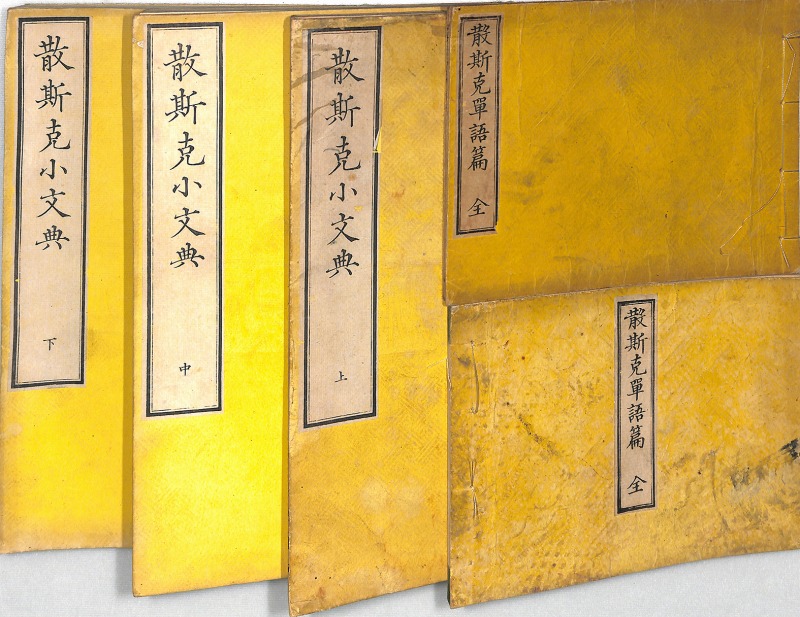 散斯克小文典 下
散斯克小文典 中
散斯克小文典 上
散斯克單語篇 全
散斯克單語篇 全